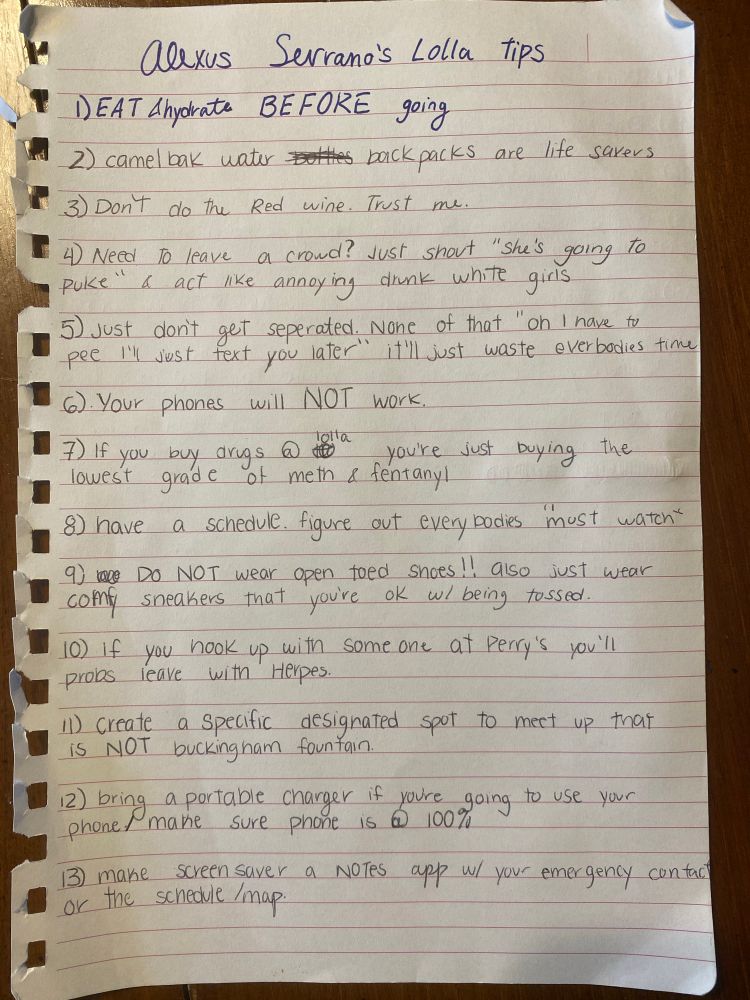 Alexus Serrano's Lolla tips
1) EAT & hydrate BEFORE going
2) camelbak water bottles backpacks are life savers
3) Don't do the Red wine. Trust me.
4) Need to leave a crowd? Just shout "she's going to
puke" & act like annoying drunk white girls
5) Just don't get seperated. None of that "oh I have to
pee I'll just text you later" it'll just waste everbodies time
6). Your phones will NOT work.
7) If you buy drugs @ lolla you're just buying the
lowest grade of meth & fentanyl
8) have a schedule. figure out everybodies "must watch"
9) DO NOT wear open toed shoes!! also just wear
comfy sneakers that you're ok w/ being tossed.
10) if you hook up with someone at Perry's you'll
probs leave with Herpes.
11) create a specific designated spot to meet up that
is NOT buckingham fountain.
12) bring a portable charger if you're going to use your
phone/ make sure phone is @ 100%
13) make screen saver a NOTES app w/ your emergency contact
or the schedule/map.